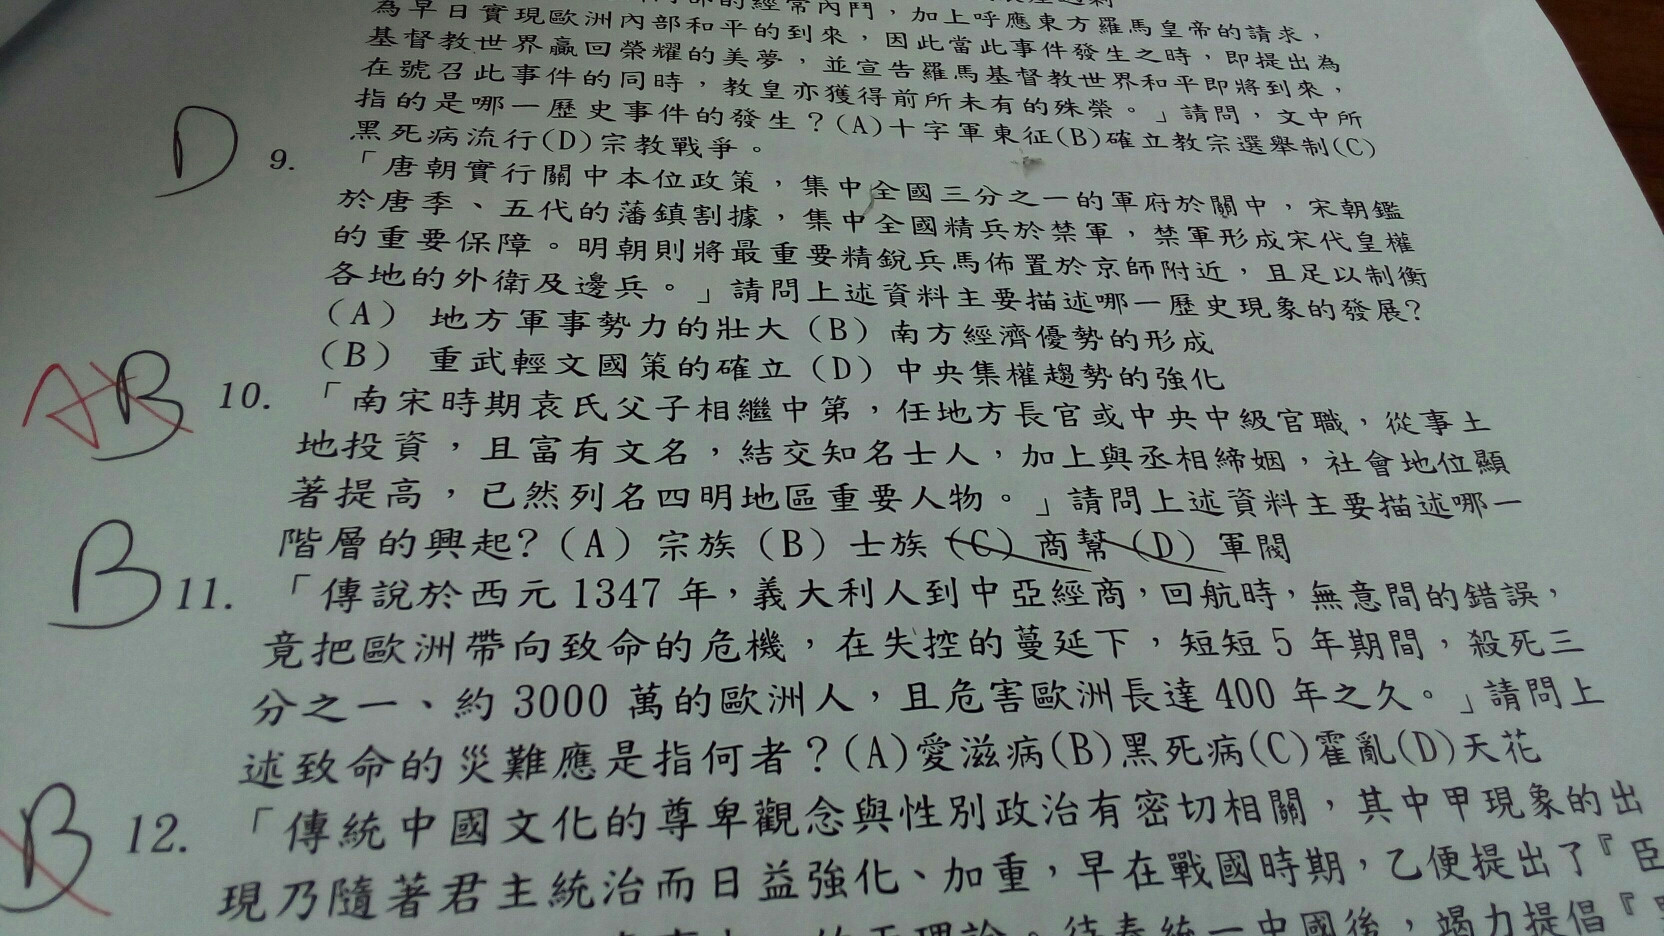 的經常內鬥，
為早日實現歐洲內部和平的到來，加上呼應東方羅馬皇帝的請求，
基督教世界贏回榮耀的美夢，因此當此事件發生之時，即提出為
在號召此事件的同時，並宣告羅馬基督教世界和平即將到來，
指的是哪一歷史事件的發生？教皇亦獲得前所未有的殊榮。」請問，文中所
黑死病流行(D)宗教戰爭。(A)十字軍東征(B)確立教宗選舉制(C)
D 9. 「唐朝實行關中本位政策，集中全國三分之一的軍府於關中，宋朝鑑
於唐季、五代的藩鎮割據，集中全國精兵於禁軍，禁軍形成宋代皇權
的重要保障。明朝則將最重要精銳兵馬佈置於京師附近，且足以制衡
各地的外衛及邊兵。」請問上述資料主要描述哪一歷史現象的發展?
(A) 地方軍事勢力的壯大 (B) 南方經濟優勢的形成
(B) 重武輕文國策的確立 (D) 中央集權趨勢的強化
A B 10. 「南宋時期袁氏父子相繼中第，任地方長官或中央中級官職，從事土
地投資，且富有文名，結交知名士人，加上與丞相締姻，社會地位顯
著提高，已然列名四明地區重要人物。」請問上述資料主要描述哪一
階層的興起? (A) 宗族 (B) 士族 (C) 商幫 (D) 軍閥
B 11. 「傳說於西元 1347 年，義大利人到中亞經商，回航時，無意間的錯誤，
竟把歐洲帶向致命的危機，在失控的蔓延下，短短 5 年期間，殺死三
分之一、約 3000 萬的歐洲人，且危害歐洲長達 400 年之久。」請問上
述致命的災難應是指何者？(A)愛滋病(B)黑死病(C)霍亂(D)天花
B 12. 「傳統中國文化的尊卑觀念與性別政治有密切相關，其中甲現象的出
現乃隨著君主統治而日益強化、加重，早在戰國時期，乙便提出了『臣
理論。待秦統一中國後，竭力提倡『